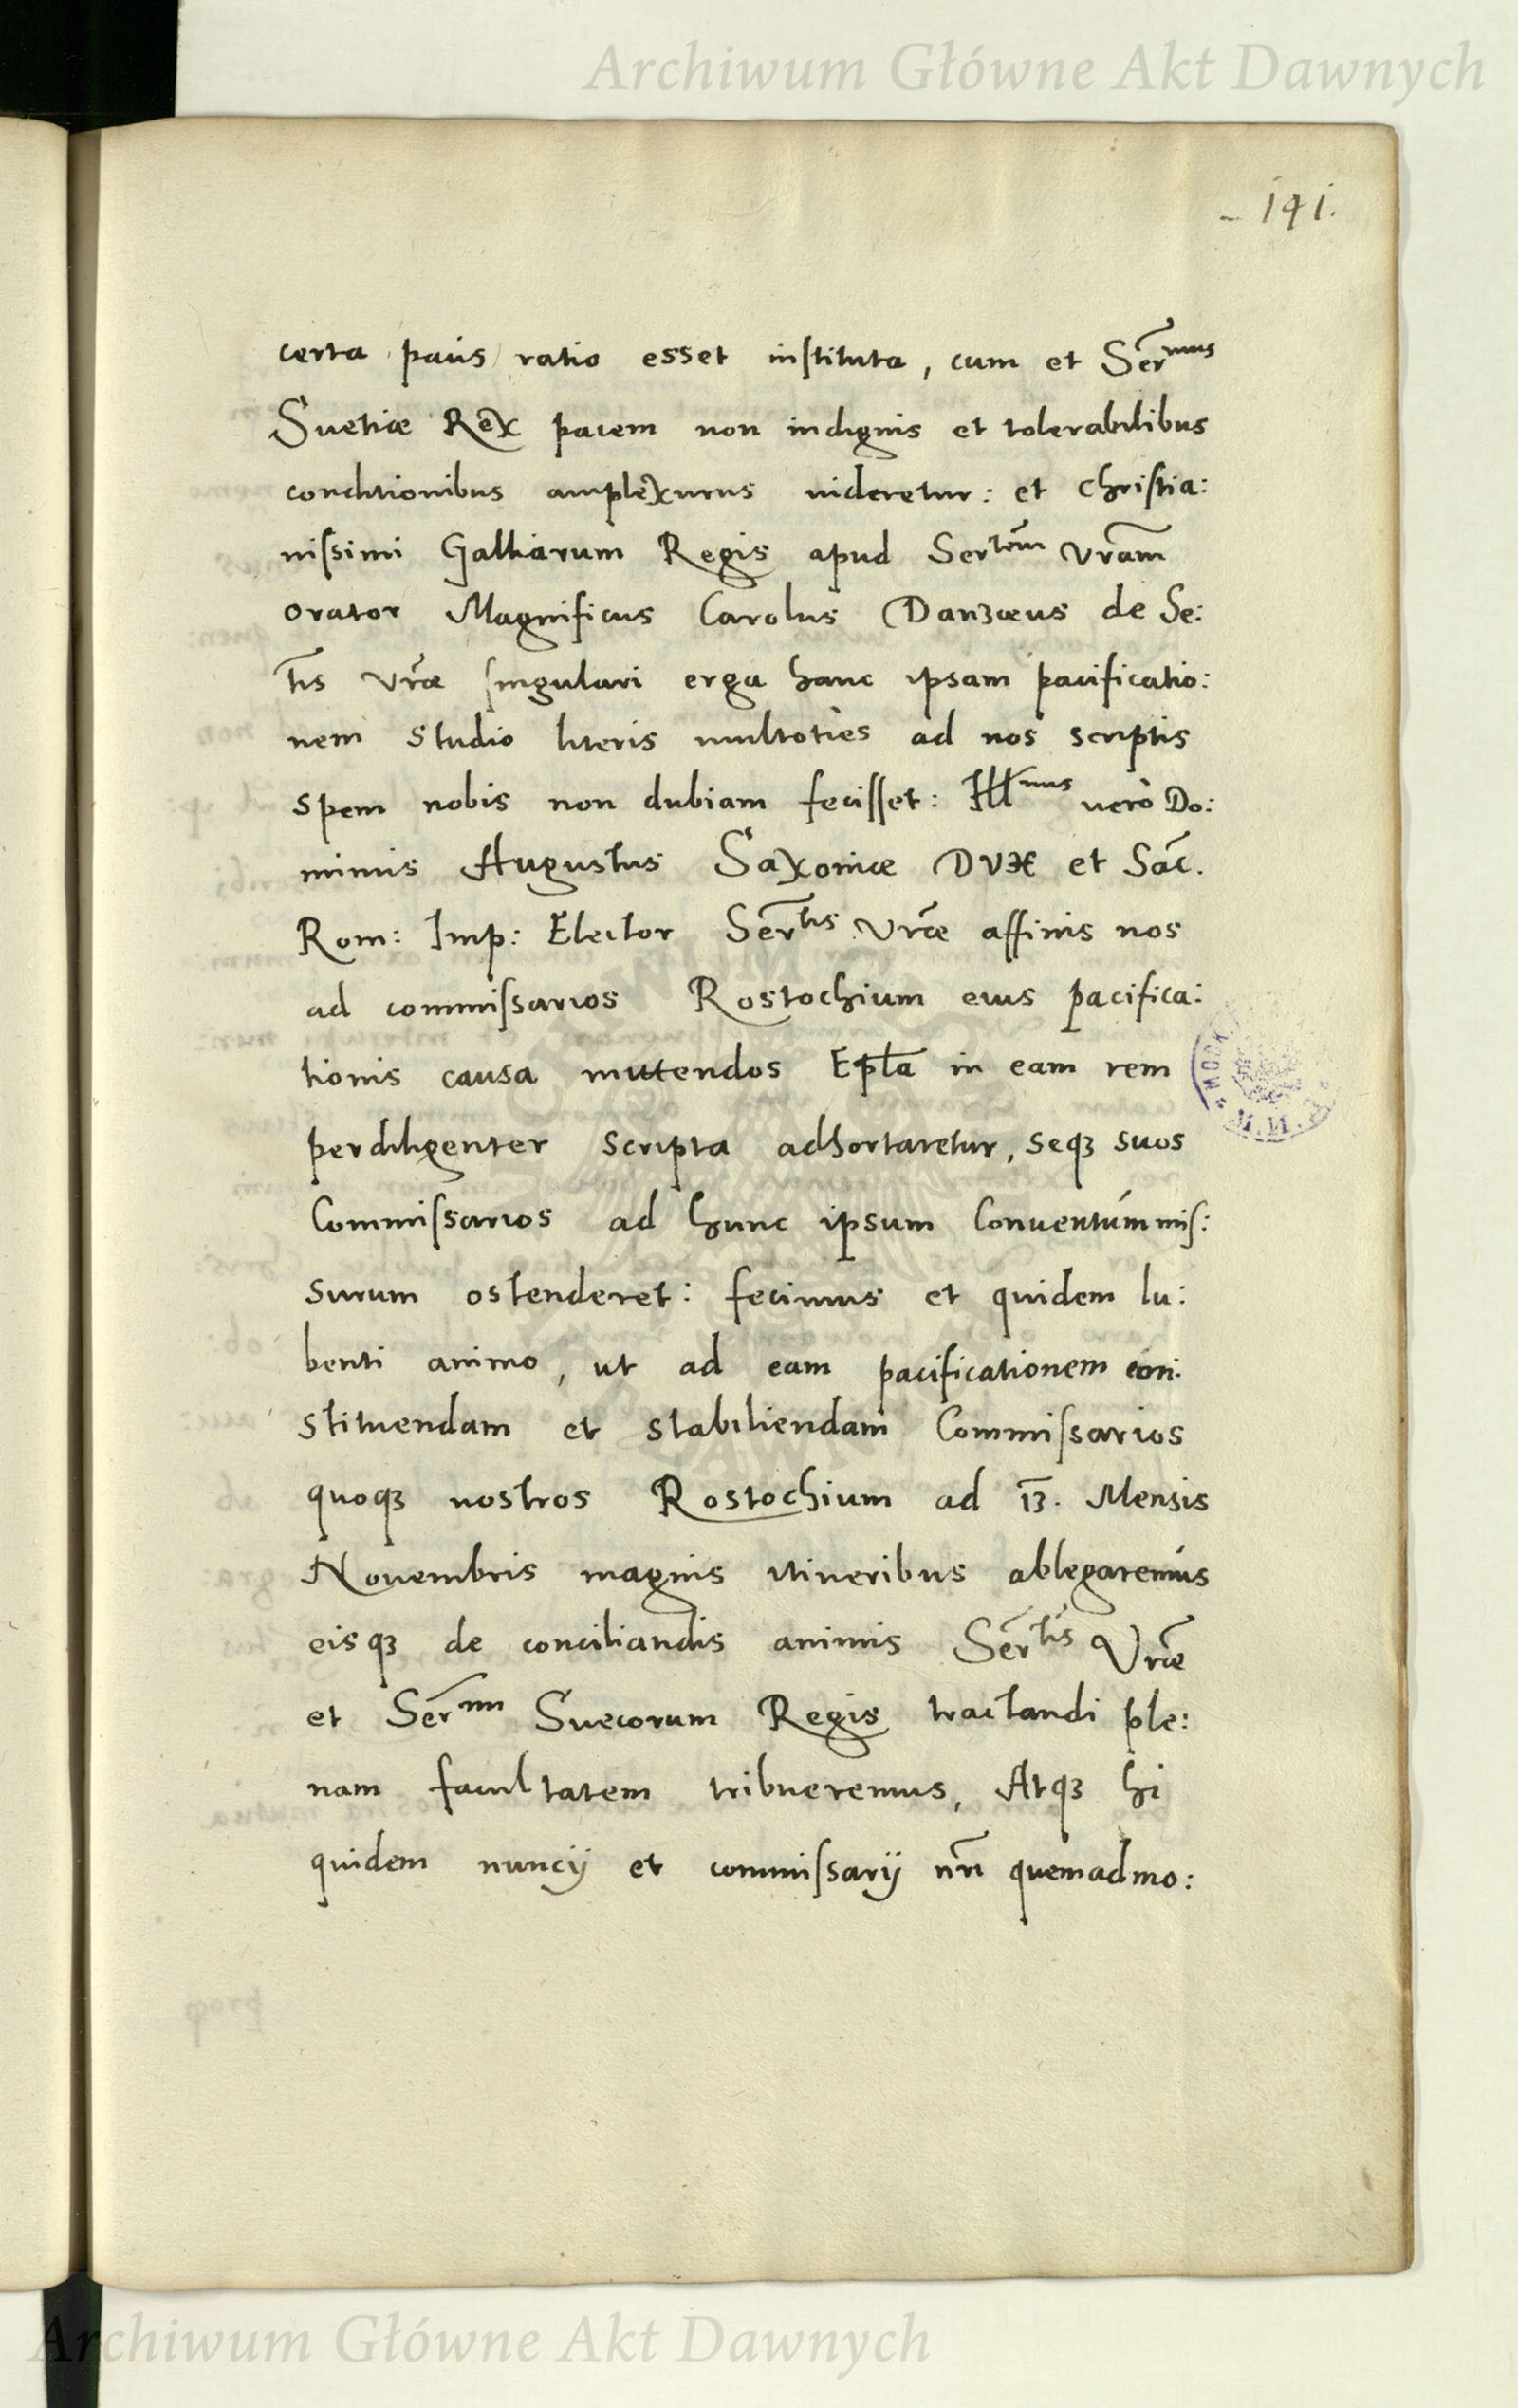 Archiwum Główne Akt Dawnych
141.
certa pacis ratio esset instituta, cum et Ser̄mus
Suetiæ Rex pacem non indignis et tolerabilibus
conditionibus amplexurus uideretur: et Christia:
nissimi Galliarum Regis apud Sertem̄ Vram̄
orator Magnificus Carolus Danzæus de Se:
tis̄ Vrǣ singulari erga hanc ipsam pacificatio:
nem studio literis multoties ad nos scriptis
spem nobis non dubiam fecisset: Illmus uerò Do:
minus Augustus Saxoniæ DVX et Sac̄.
Rom: Imp: Elector Ser̄tis Vrǣ affinis nos
ad commissarios Rostochium eius pacifica:
tionis causa mittendos Epl̄a in eam rem
perdiligenter scripta adhortaretur, seqꝫ suos
Commissarios ad hunc ipsum Conuentum mis:
surum ostenderet: fecimus et quidem lu:
benti animo, ut ad eam pacificationem con:
stituendam et stabiliendam Commissarios
quoqꝫ nostros Rostochium ad 13. Mensis
Nouembris magnis itineribus ablegaremus
eisqꝫ de conciliandis animis Ser̄tis Vrǣ
et Ser̄mi Suecorum Regis tractandi ple:
nam facultatem tribueremus, Atqꝫ hi
quidem nuncij et commissarij nr̄i quemadmo:
Archiwum Główne Akt Dawnych